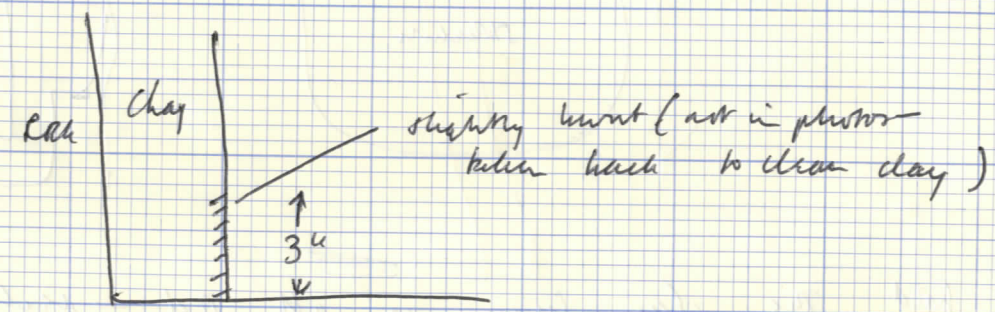 Clay
slightly burnt (not in photos
taken back to clean clay)
3"